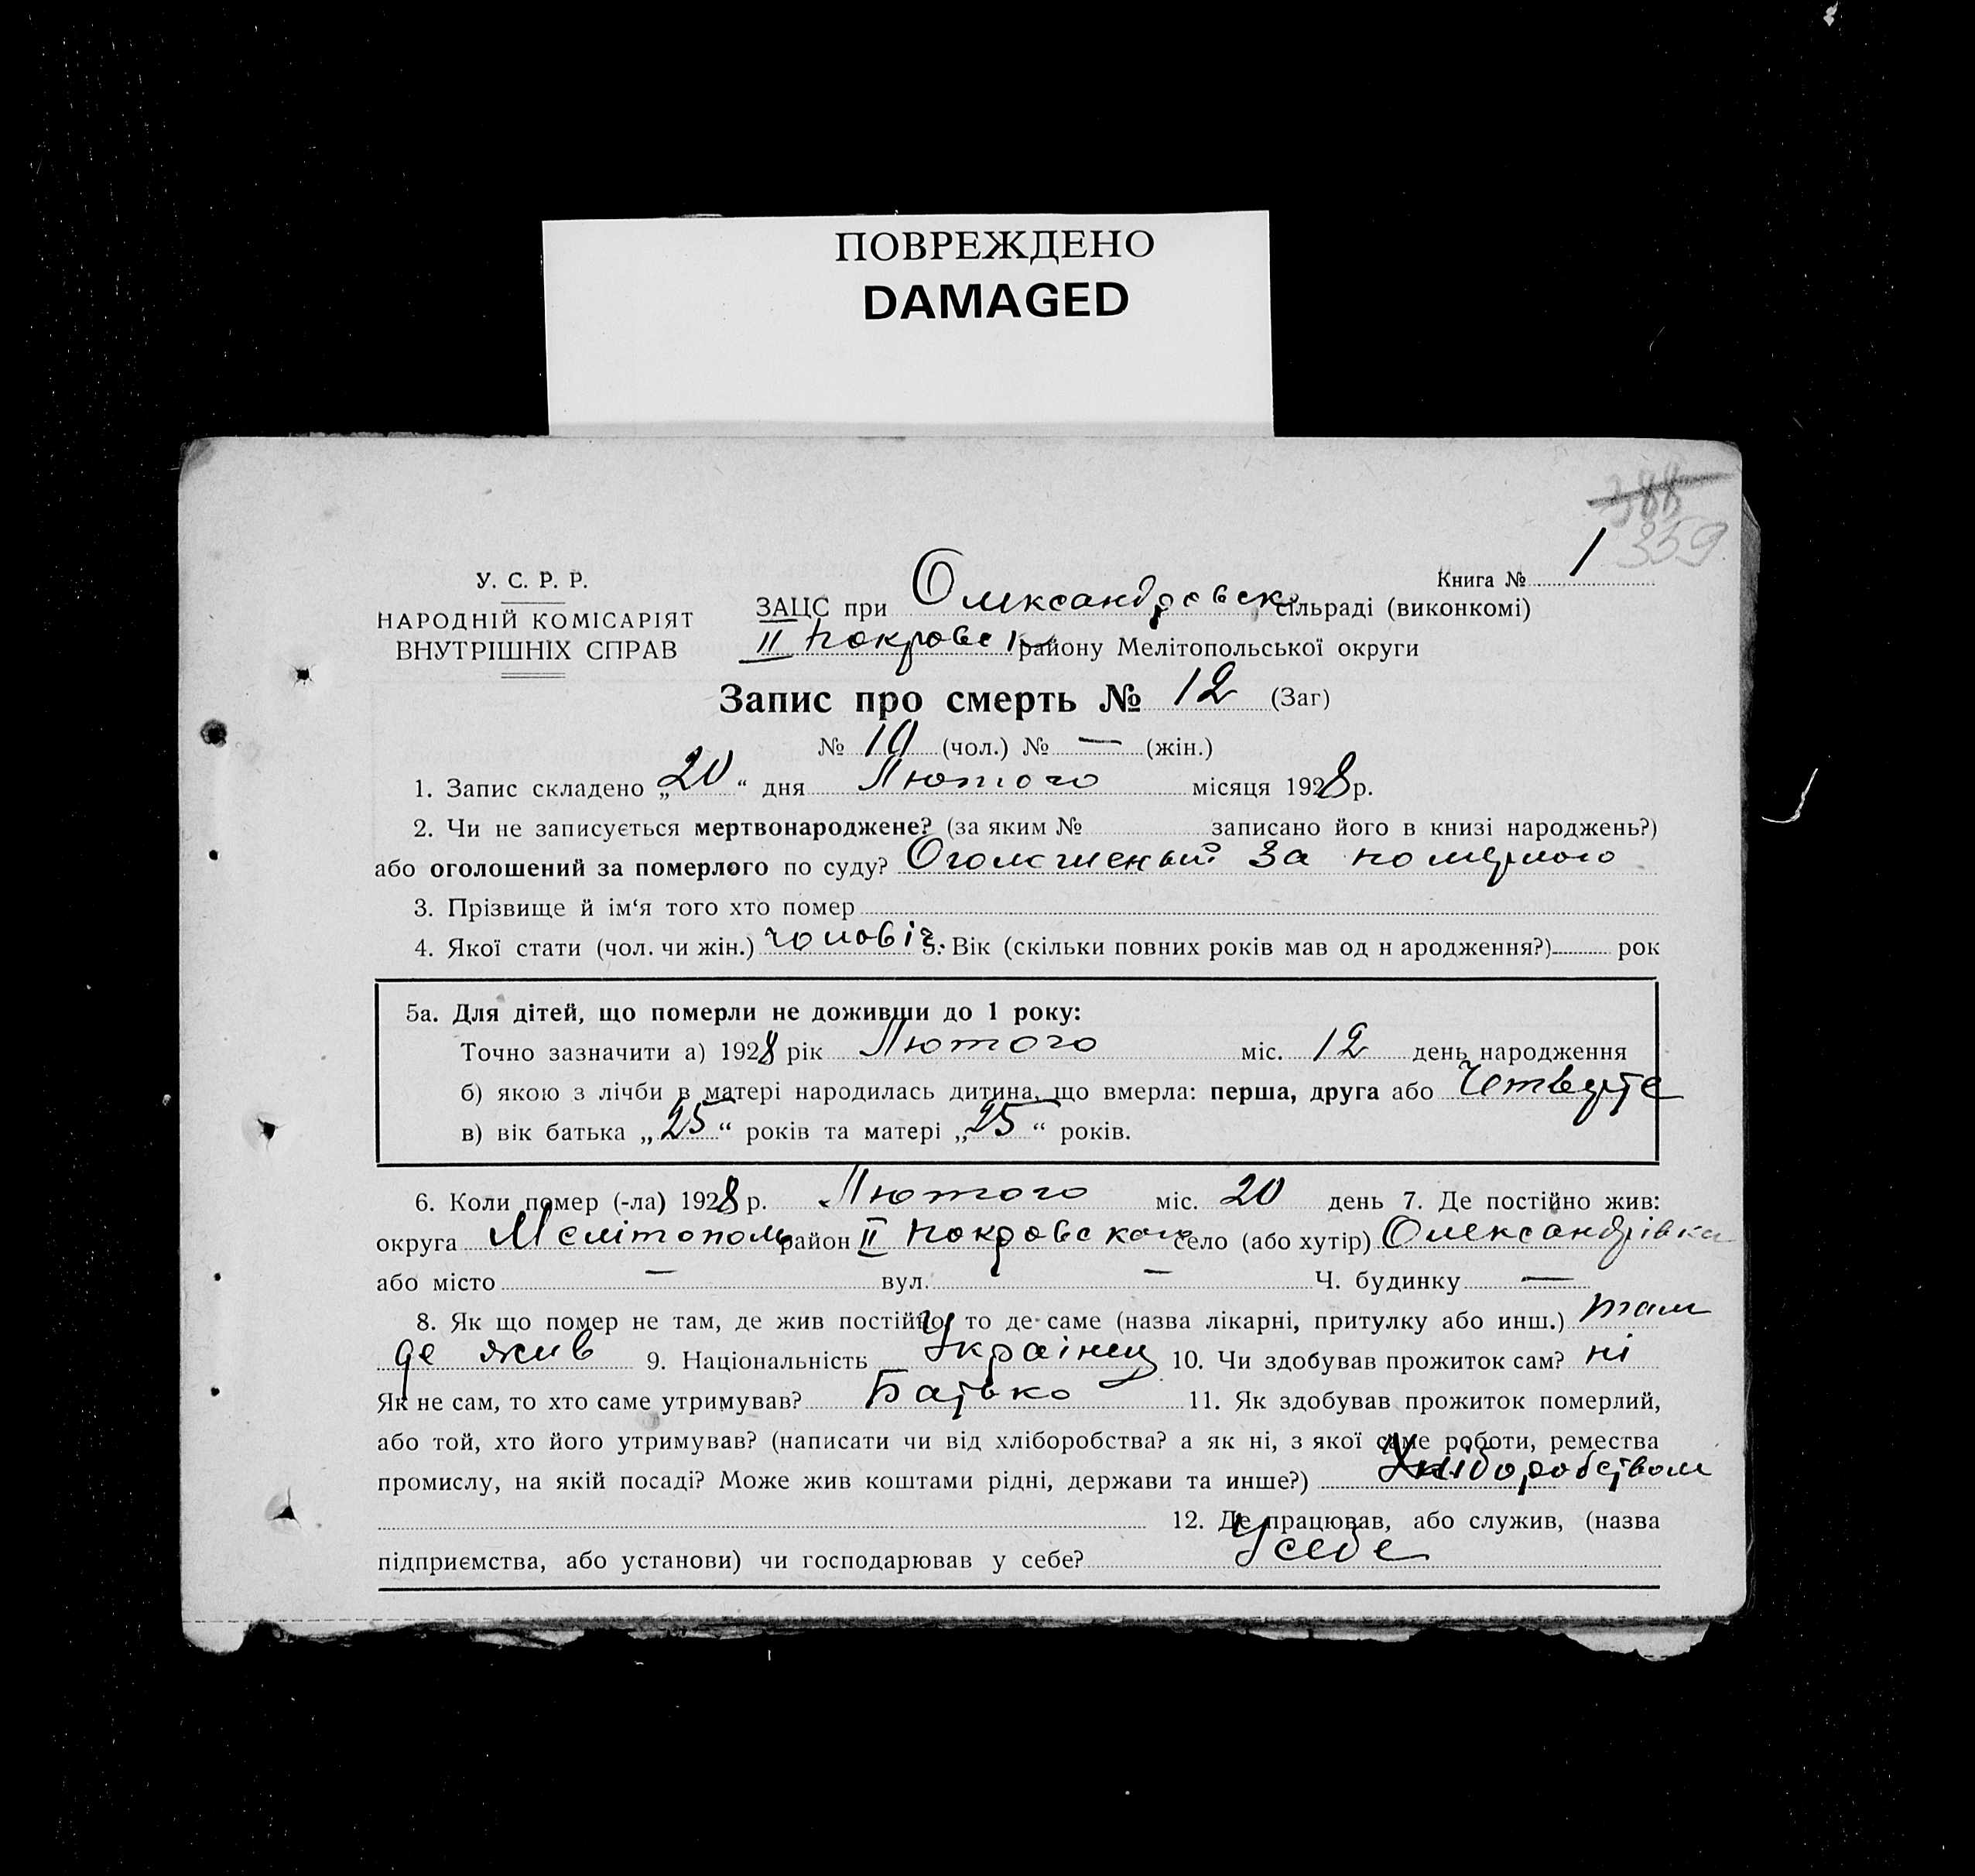 ПОВРЕЖДЕНО
DAMAGED
388
359
У. С. Р. Р.
НАРОДНІЙ КОМІСАРІЯТ
ВНУТРІШНІХ СПРАВ
Книга № 1
ЗАЦС при Олександровск. сільраді (виконкомі)
II Покровск району Мелітопольської округи
Запис про смерть № 12 (Заг)
№ 10 (чол.) № — (жін.)
1. Запис складено „20“ дня Лютого місяця 1928 р.
2. Чи не записується мертвонароджене? (за яким № записано його в книзі народжень?)
або оголошений за померлого по суду? Оголошений за померлого
3. Прізвище й ім‘я того хто помер
4. Якої стати (чол. чи жін.) чоловіч. 5. Вік (скільки повних років мав од н ародження?) рок
5а. Для дітей, що померли не доживши до 1 року:
Точно зазначити а) 1928 рік Лютого міс. 12 день народження
б) якою з лічби в матері народилась дитина, що вмерла: перша, друга або Четверте
в) вік батька „25“ років та матері „25“ років.
6. Коли помер (-ла) 1928 р. Лютого міс. 20 день 7. Де постійно жив:
округа Мелітополь район II Покровского село (або хутір) Олександрівка
або місто — вул. — Ч. будинку —
8. Як що помер не там, де жив постійно, то де саме (назва лікарні, притулку або инш.) там
де жив 9. Національність Українец 10. Чи здобував прожиток сам? ні
Як не сам, то хто саме утримував? Батько 11. Як здобував прожиток померлий,
або той, хто його утримував? (написати чи від хліборобства? а як ні, з якої саме роботи, ремества
промислу, на якій посаді? Може жив коштами рідні, держави та инше?) Хліборобством
12. Де працював, або служив, (назва
підприємства, або установи) чи господарював у себе? У себе